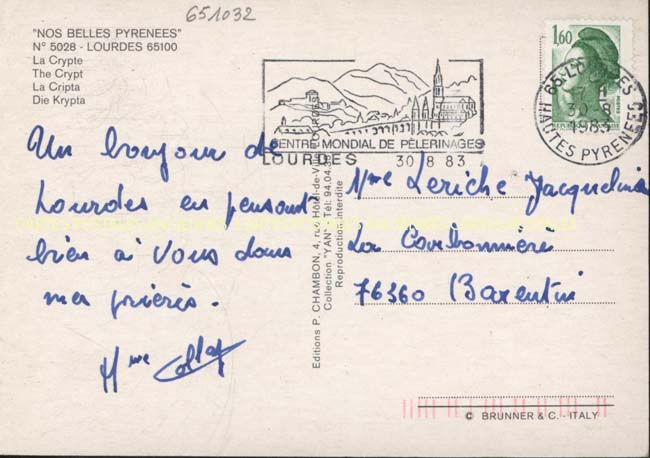 651032
"NOS BELLES PYRENEES"
N° 5028 - LOURDES 65100
La Crypte
The Crypt
La Cripta
Die Krypta
Un bonjour de
Lourdes en pensant
bien à vous dans
mes prières.
Mme
CENTRE MONDIAL DE PÈLERINAGES
LOURDES 30·8 83
1,60
65-LOURDES
30-8
1983
HAUTES PYRENEES
Editions P. CHAMBON, 4, rue Hôtel-de-Ville LOURDES
Collection "YAN" - Tél. 94.04.
Reproduction interdite
Mme Leriche Jacqueline
La Carbonnière
76360 Barentin
© BRUNNER & C. - ITALY